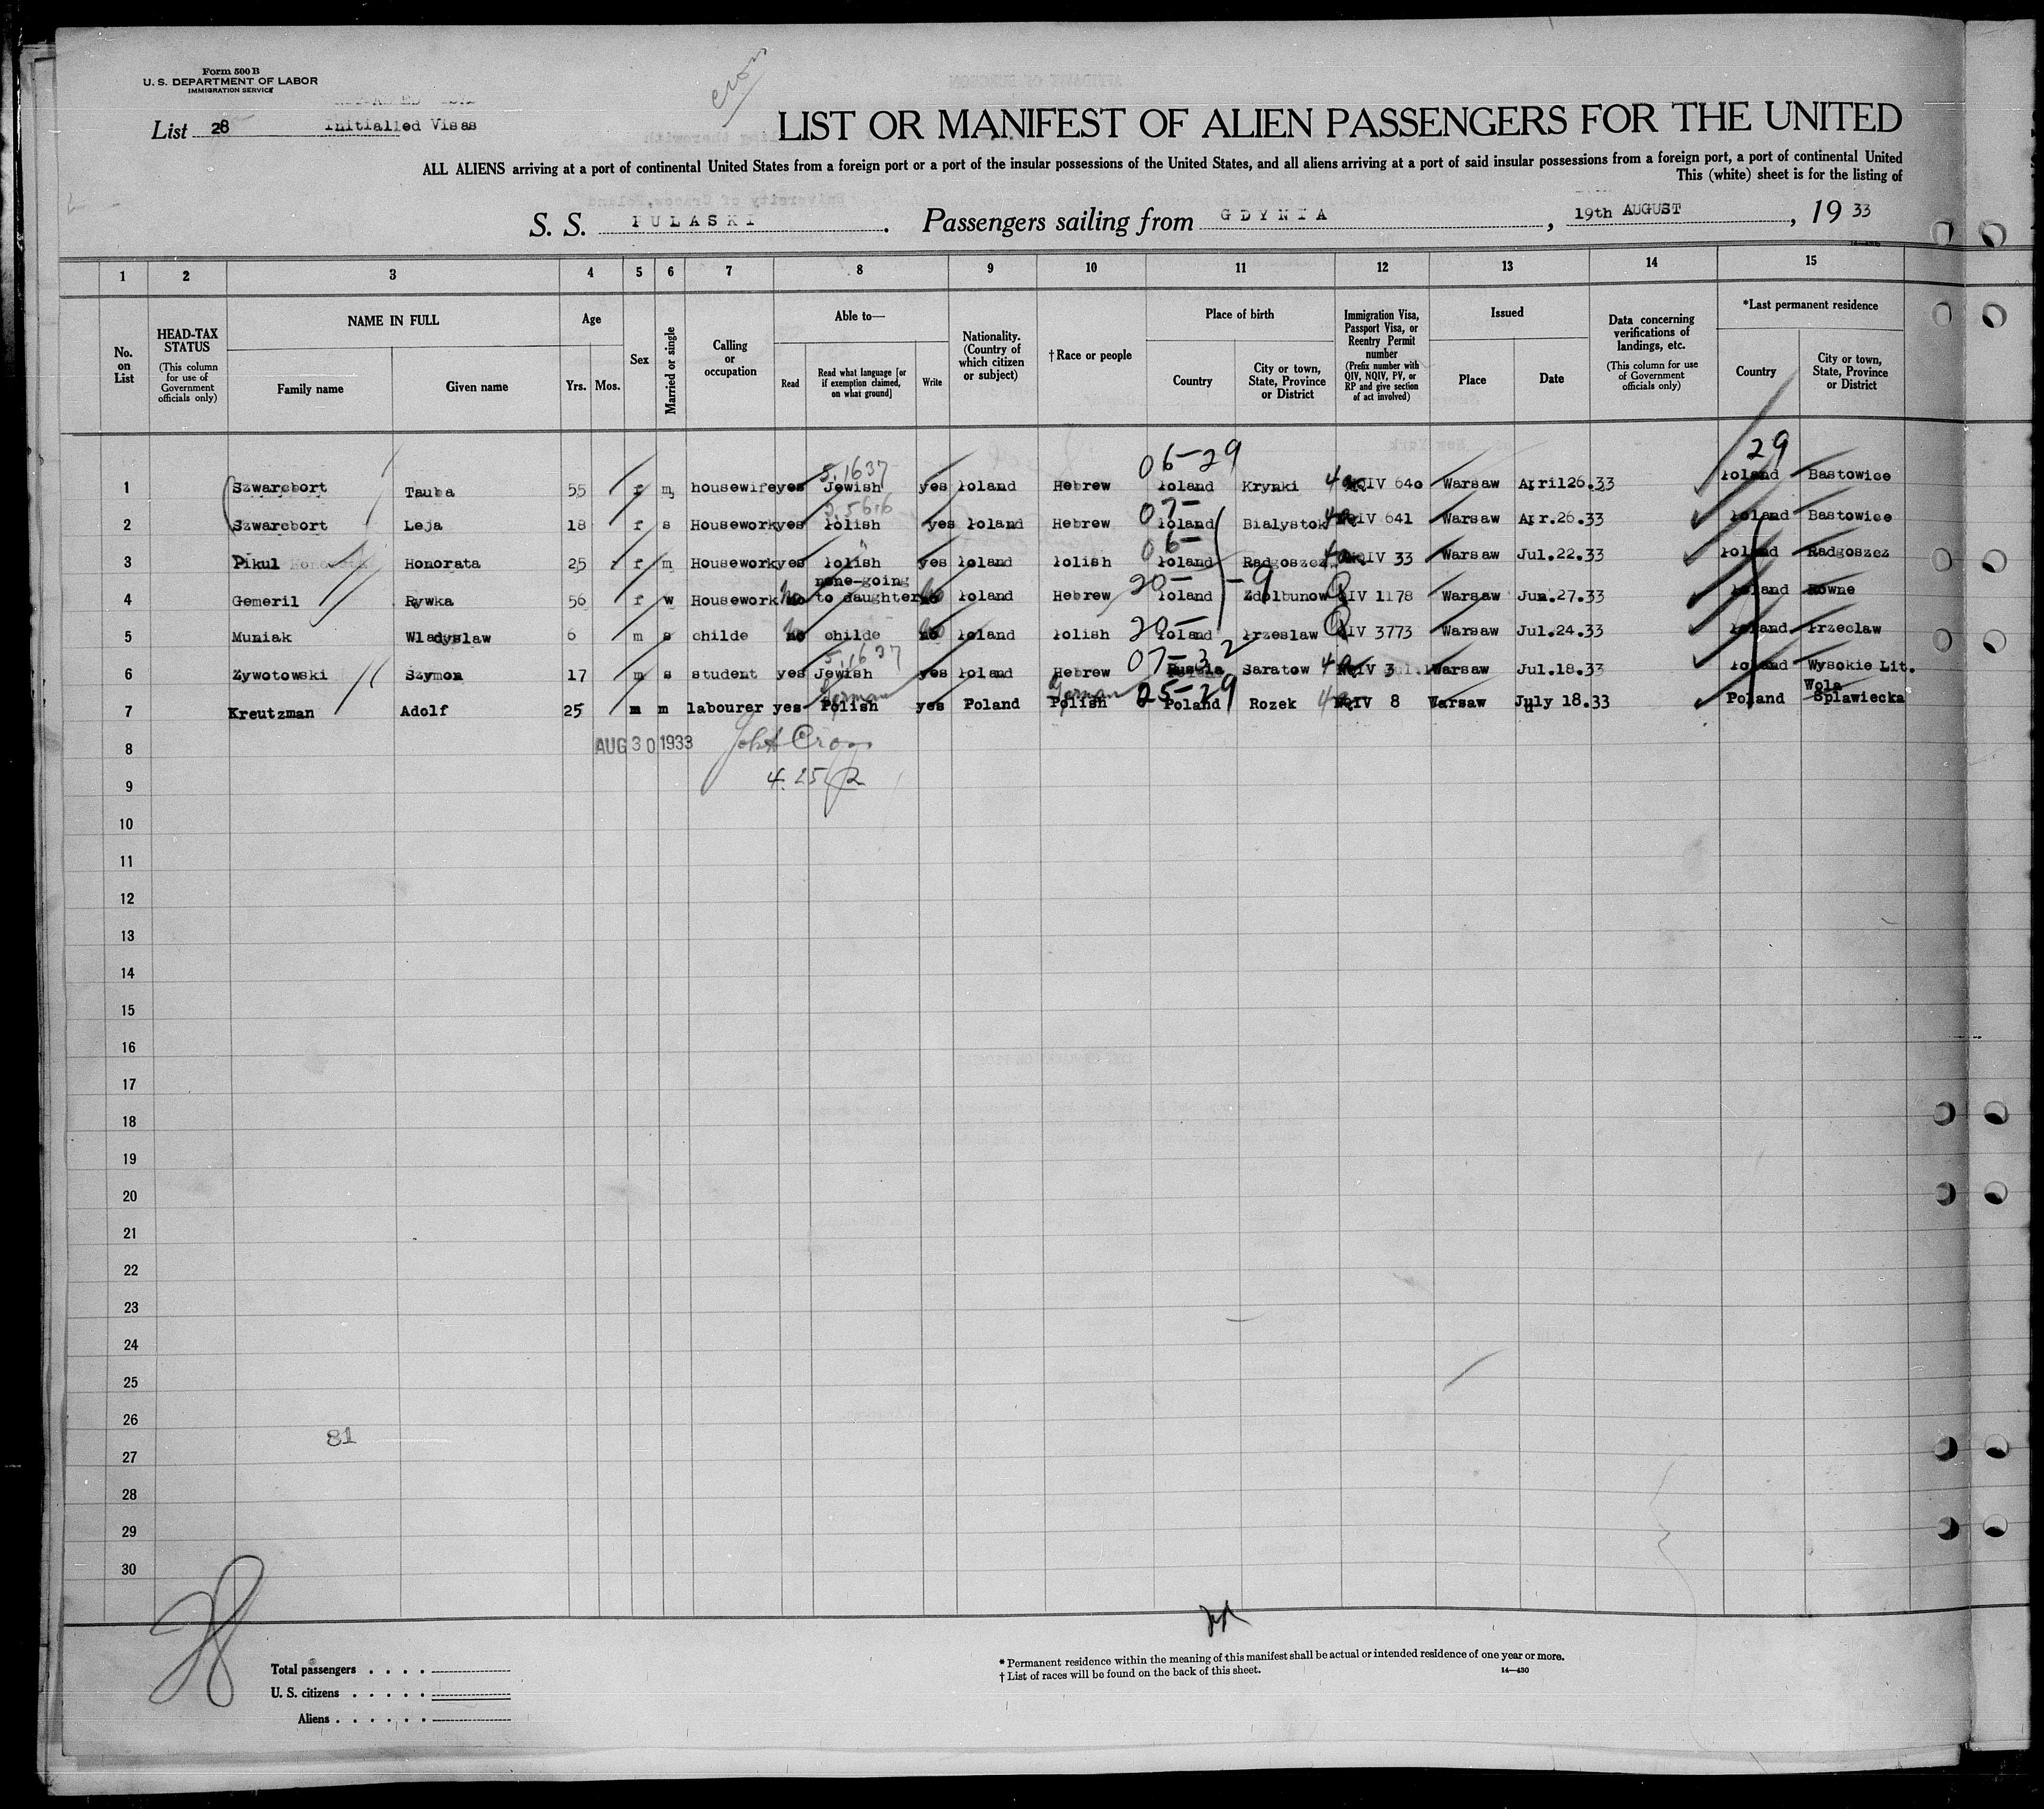 Form 500 B
U. S. DEPARTMENT OF LABOR
IMMIGRATION SERVICE
List 28 Initialled Visas
LIST OR MANIFEST OF ALIEN PASSENGERS FOR THE UNITED
ALL ALIENS arriving at a port of continental United States from a foreign port or a port of the insular possessions of the United States, and all aliens arriving at a port of said insular possessions from a foreign port, a port of continental United
This (white) sheet is for the listing of
S. S. PULASKI. Passengers sailing from GDYNIA, 19th AUGUST, 19 33
1 2 3 4 5 6 7 8 9 10 11 12 13 14 15
No. on List
HEAD-TAX STATUS (This column for use of Government officials only)
NAME IN FULL
Family name Given name
Age
Yrs. Mos.
Sex
Married or single
Calling or occupation
Able to—
Read
Read what language [or if exemption claimed, on what ground]
Write
Nationality. (Country of which citizen or subject)
† Race or people
Place of birth
Country
City or town, State, Province or District
Immigration Visa, Passport Visa, or Reentry Permit number (Prefix number with QIV, NQIV, PV, or RP and give section of act involved)
Issued
Place Date
Data concerning verifications of landings, etc. (This column for use of Government officials only)
*Last permanent residence
Country
City or town, State, Province or District
06-29 29
5,1637
1 Szwarcbort Tauba 55 f m housewife yes Jewish yes Poland Hebrew Poland Krynki 4a QIV 640 Warsaw April 26.33 Poland Bastowice
5,5616 07-
2 Szwarcbort Leja 18 f s Housework yes Polish yes Poland Hebrew Poland Bialystok 4a QIV 641 Warsaw Apr.26.33 Poland Bastowice
06-
3 Pikul Honorata 25 f m Housework yes Polish yes Poland Polish Poland Radgoszcz 4a QIV 33 Warsaw Jul.22.33 Poland Radgoszcz
none-going 20- -9
4 Gemeril Rywka 56 f w Housework no to daughter no Poland Hebrew Poland Zdolbunow QIV 1178 Warsaw Jun.27.33 Poland Rowne
5 Muniak Wladyslaw 6 m s childe no childe no Poland Polish 20- Poland Przeslaw QIV 3773 Warsaw Jul.24.33 Poland Przeclaw
5,1637 07-32
6 Zywotowski Szymon 17 m s student yes Jewish yes Poland Hebrew Russia Saratow 4a QIV 3 Warsaw Jul.18.33 Poland Wysokie Lit.
German German 25-29 Wola
7 Kreutzman Adolf 25 m m labourer yes Polish yes Poland Polish Poland Rozek 4a QIV 8 Warsaw July 18.33 Poland Splawiecka
8 AUG 30 1933 John Cron
9
10
11
12
13
14
15
16
17
18
19
20
21
22
23
24
25
26
81
27
28
29
30
Total passengers
U. S. citizens
Aliens
* Permanent residence within the meaning of this manifest shall be actual or intended residence of one year or more.
† List of races will be found on the back of this sheet.
14—430